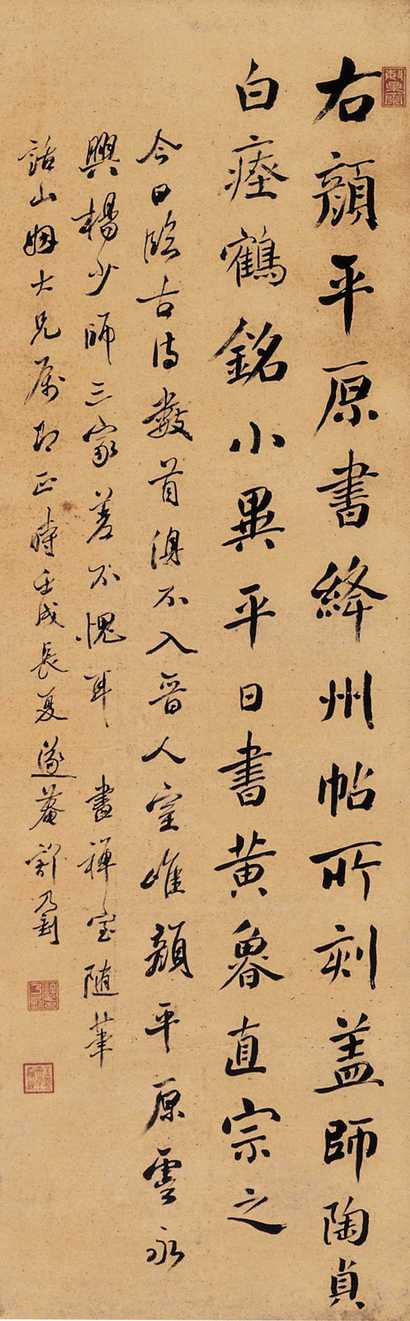 右顏平原書絳州帖所刻蓋師陶貞
白瘞鶴銘小異平日書黃魯直宗之
今日臨古詩數首俱不入晉人室唯顏平原虞永
興楊少師三家差不愧耳 畫禪室隨筆
詁山姻大兄屬即正時壬戌長夏遂菴舒乃劉